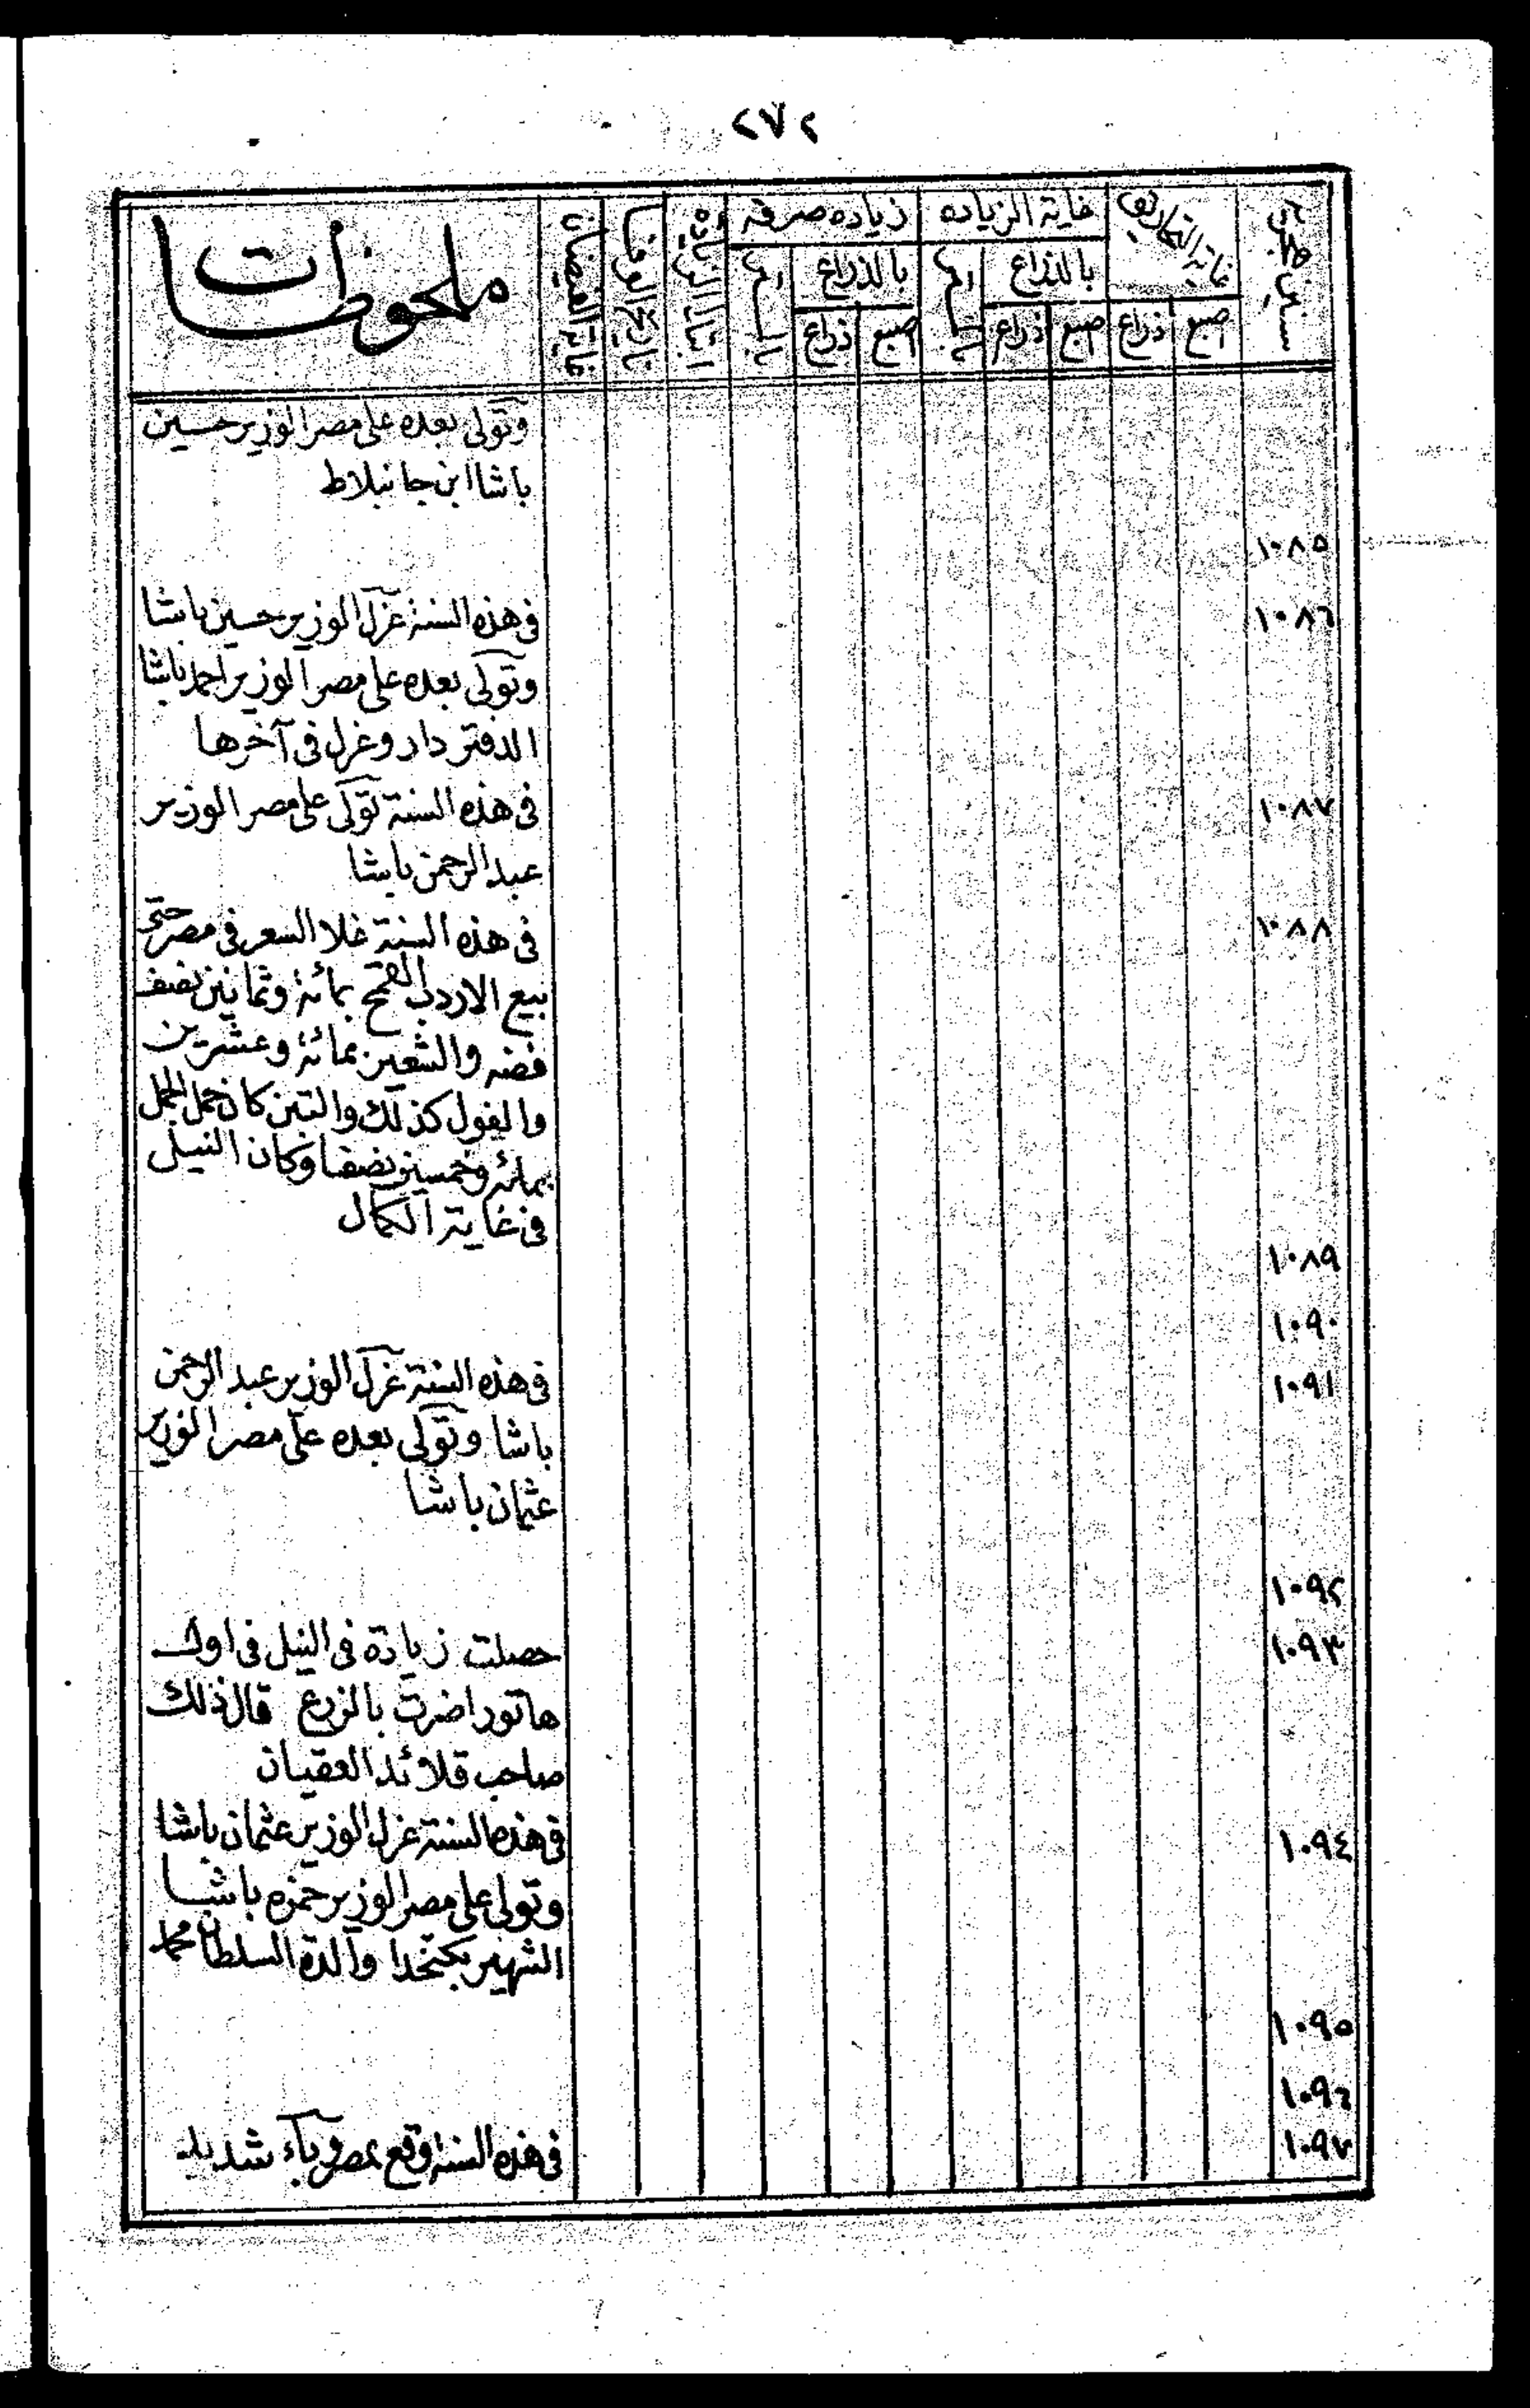 ٢٧٢
سنين هجرية
غاية التحاريق
غاية الزياده
زياده صرفه
ابتداء الزياده
تاريخ الوفا
غاية الفيضان
ملحوظات
بالذراع
بالذراع
اصبع ذراع اصبع ذراع اصبع ذراع
وتولى بعده على مصر الوزير حسين
باشا ابن جانبلاط
١٠٨٥
١٠٨٦ فى هذه السنة عزل الوزير حسين باشا
وتولى بعده على مصر الوزير احمد باشا
الدفتر دار وعزل فى آخرها
١٠٨٧ فى هذه السنة تولى على مصر الوزير
عبد الرحمن باشا
١٠٨٨ فى هذه السنة غلا السعر فى مصر حتى
بيع الاردب القمح بمائة وثمانين نصف
فضه والشعير بمائة وعشرين
والفول كذلك والتبن كان حمل الجمل
بمائة وخمسين نصفا وكان النيل
فى غاية الكمال
١٠٨٩
١٠٩٠
١٠٩١ فى هذه السنة عزل الوزير عبد الرحمن
باشا وتولى بعده على مصر الوزير
عثمان باشا
١٠٩٢
١٠٩٣ حصلت زيادة فى النيل فى اول
هاتور اضرت بالزرع قال ذلك
صاحب قلائد العقيان
١٠٩٤ فى هذه السنة عزل الوزير عثمان باشا
وتولى على مصر الوزير حمزه باشا
الشهير بكتخدا والدة السلطان محمد
١٠٩٥
١٠٩٦
١٠٩٧ فى هذه السنة وقع بمصر وبآء شديد